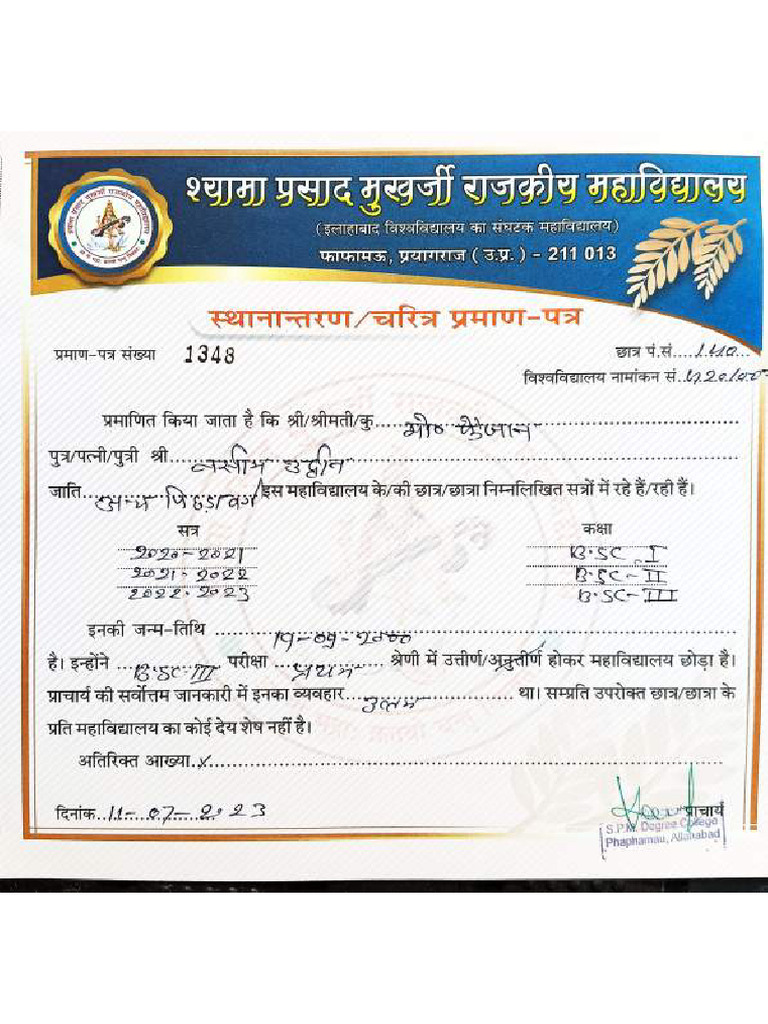 श्यामा प्रसाद मुखर्जी राजकीय महाविद्यालय
(इलाहाबाद विश्वविद्यालय का संघटक महाविद्यालय)
फाफामऊ, प्रयागराज ( उ.प्र. ) - 211 013
स्थानान्तरण/चरित्र प्रमाण-पत्र
प्रमाण-पत्र संख्या 1348 छात्र पं.सं....140...
विश्वविद्यालय नामांकन सं..
प्रमाणित किया जाता है कि श्री/श्रीमती/कु. मो० फैजान
पुत्र/पत्नी/पुत्री श्री वसीम उद्दीन
जाति अन्य पिछड़ा वर्ग /इस महाविद्यालय के/की छात्र/छात्रा निम्नलिखित सत्रों में रहे हैं/रही हैं।
सत्र कक्षा
2020-2021 B.SC. I
2021-2022 B.SC-II
2022-2023 B.SC-III
इनकी जन्म-तिथि
है। इन्होंने B.SC-III परीक्षा प्रथम श्रेणी में उत्तीर्ण/अनुत्तीर्ण होकर महाविद्यालय छोड़ा है।
प्राचार्य की सर्वोत्तम जानकारी में इनका व्यवहार उत्तम था। सम्प्रति उपरोक्त छात्र/छात्रा के
प्रति महाविद्यालय का कोई देय शेष नहीं है।
अतिरिक्त आख्या..x
दिनांक..11-07-2023 प्राचार्य
S.P.M. Degree College
Phaphamau, Allahabad